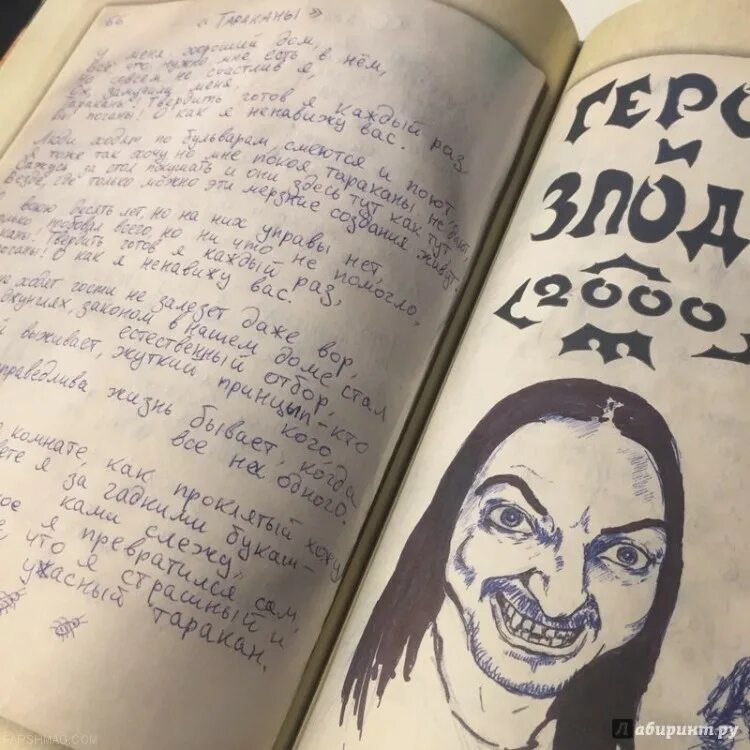 66 «Тараканы»
У меня хороший дом,
Всё что нужно мне есть в нём,
Но совсем не счастлив я,
Ох, замучили меня,
Тараканы! Твердить готов я каждый раз
Вы поганы! О как я ненавижу вас.
Люди ходят по бульварам, смеются и поют,
Я тоже так хочу но мне покоя тараканы не дают,
Сажусь за стол покушать и они здесь тут как тут
Везде, где только можно эти мерзкие создания живут.
воюю десять лет, но на них управы нет,
только пробовал всего, но ни что не помогло,
каны! Твердить готов я каждый раз,
поганы! О как я ненавижу вас.
не ходят гости не залезет даже вор,
джунглях, законом в нашем доме стал
естественный отбор,
выживает, жуткий принцып - кто
кого
справедлива жизнь бывает, когда
все на одного.
комнате, как проклятый хожу
я за гадкими букаш-
ками слежу,
я превратился сам,
что я страшный и
ужасный таракан.
ГЕРО
И
ЗЛОД
2000
PAPSHMAG.COM
Лабиринт.ру